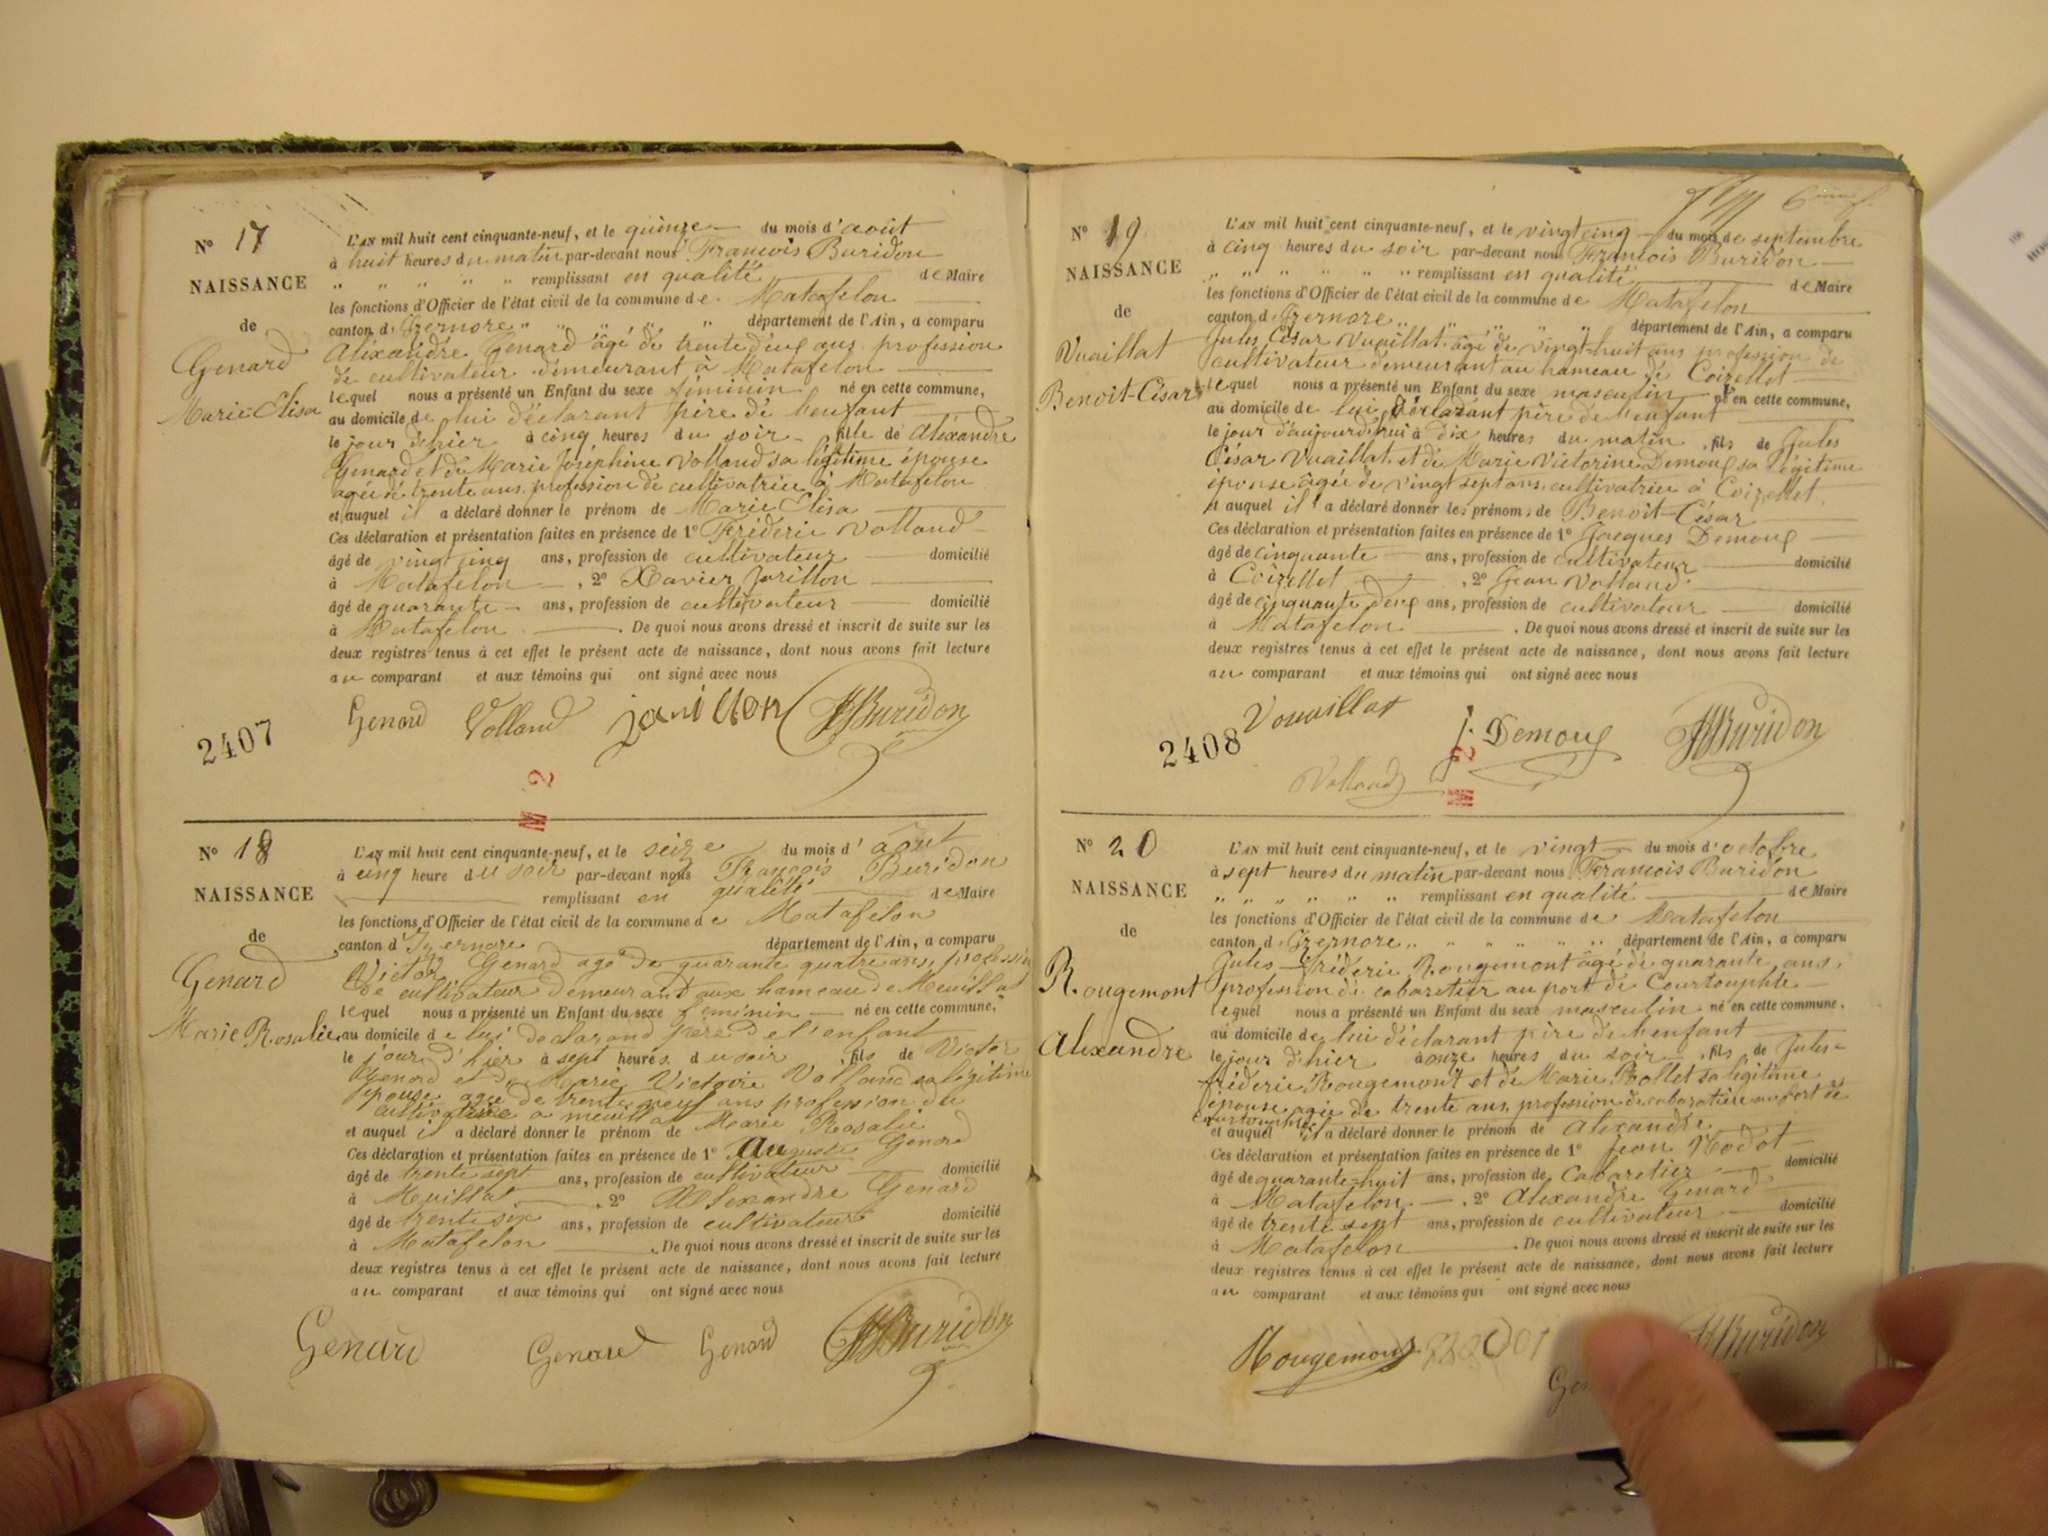 N° 17
NAISSANCE
de
Genard
Marie-Elisa
L'AN mil huit cent cinquante-neuf, et le quinze du mois d'août
à huit heures du matin par-devant nous François Buridon
" " " " " remplissant en qualité de Maire
les fonctions d'Officier de l'état civil de la commune de Matafelon
canton d'Izernore " " " " " département de l'Ain, a comparu
Alexandre Genard âgé de trente deux ans profession
de cultivateur demeurant à Matafelon
lequel nous a présenté un Enfant du sexe féminin né en cette commune,
au domicile de lui déclarant père de l'enfant
le jour d'hier à cinq heures du soir fille de Alexandre
Genard et de Marie Joséphine Volland sa légitime épouse
agée de trente ans profession de cultivatrice à Matafelon
et auquel il a déclaré donner le prénom de Marie Elisa
Ces déclaration et présentation faites en présence de 1° Fréderic Volland
âgé de vingt cinq ans, profession de cultivateur domicilié
à Matafelon , 2° Xavier Jarillon
âgé de quarante ans, profession de cultivateur domicilié
à Matafelon . De quoi nous avons dressé et inscrit de suite sur les
deux registres tenus à cet effet le présent acte de naissance, dont nous avons fait lecture
au comparant et aux témoins qui ont signé avec nous
Genard Volland jarillon Buridon
2407
M 2
N° 18
NAISSANCE
de
Genard
Marie Rosalie
L'AN mil huit cent cinquante-neuf, et le seize du mois d'août
à cinq heure du soir par-devant nous François Buridon
remplissant en qualité de Maire
les fonctions d'Officier de l'état civil de la commune de Matafelon
canton d'Izernore département de l'Ain, a comparu
Victor Genard agé de quarante quatre ans, profession
de cultivateur demeurant aux hameau de Meuillat
lequel nous a présenté un Enfant du sexe feminin né en cette commune,
au domicile de lui declarand père de l'enfant
le jour d'hier à sept heures du soir , fils de Victor
Genard et de Marie Victoire Volland sa légitime
épouse agée de trente neuf ans profession de
cultivatrice a meuillat
et auquel il a déclaré donner le prénom de Marie Rosalie
Ces déclaration et présentation faites en présence de 1° Auguste Genard
âgé de trente sept ans, profession de cultivateur domicilié
à Meuillat , 2° Alexandre Genard
âgé de trente six ans, profession de cultivateur domicilié
à Matafelon . De quoi nous avons dressé et inscrit de suite sur les
deux registres tenus à cet effet le présent acte de naissance, dont nous avons fait lecture
au comparant et aux témoins qui ont signé avec nous
Genard Genard Genard Buridon
N° 19
NAISSANCE
de
Vuaillat
Benoit-César
L'AN mil huit cent cinquante-neuf, et le vingt cinq du mois de septembre
à cinq heures du soir par-devant nous François Buridon
" " " " " " remplissant en qualité de Maire
les fonctions d'Officier de l'état civil de la commune de Matafelon
canton d'Izernore " " " " département de l'Ain, a comparu
Jules César Vuaillat âgé de vingt-huit ans profession de
cultivateur demeurant au hameau de Coizellet
lequel nous a présenté un Enfant du sexe masculin né en cette commune,
au domicile de lui déclarant père de l'enfant
le jour d'aujourd'hui à dix heures du matin , fils de Jules
César Vuaillat et de Marie Victorine Demoux sa légitime
épouse âgée de vingt sept ans, cultivatrice à Coizellet
et auquel il a déclaré donner les prénoms de Benoit-César
Ces déclaration et présentation faites en présence de 1° Jacques Demoux
âgé de cinquante ans, profession de cultivateur domicilié
à Coizellet , 2° Jean Volland
âgé de cinquante deux ans, profession de cultivateur domicilié
à Matafelon . De quoi nous avons dressé et inscrit de suite sur les
deux registres tenus à cet effet le présent acte de naissance, dont nous avons fait lecture
au comparant et aux témoins qui ont signé avec nous
Vouaillat J. Demoux Buridon
2408
Volland
M 2
N° 20
NAISSANCE
de
Rougemont
Alexandre
L'AN mil huit cent cinquante-neuf, et le vingt du mois d'octobre
à sept heures du matin par-devant nous François Buridon
" " " " " " remplissant en qualité de Maire
les fonctions d'Officier de l'état civil de la commune de Matafelon
canton d'Izernore " " " " " " département de l'Ain, a comparu
Jules-fréderic Rougemont âgé de quarante ans,
profession de cabaretier au port de Courtouphle
lequel nous a présenté un Enfant du sexe masculin né en cette commune,
au domicile de lui déclarant père de l'enfant
le jour d'hier à onze heures du soir , fils de Jules-
fréderic Rougemont et de Marie Rollet sa légitime
épouse agée de trente ans, profession de cabaretière au port de
Courtouphle
et auquel il a déclaré donner le prénom de Alexandre
Ces déclaration et présentation faites en présence de 1° Jean Nodot
âgé de quarante-huit ans, profession de Cabaretier domicilié
à Matafelon , 2° Alexandre Genard
âgé de trente sept ans, profession de cultivateur domicilié
à Matafelon . De quoi nous avons dressé et inscrit de suite sur les
deux registres tenus à cet effet le présent acte de naissance, dont nous avons fait lecture
au comparant et aux témoins qui ont signé avec nous
Rougemont Buridon